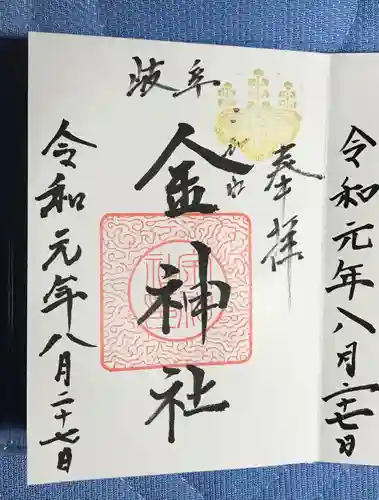 令和元年八月二十七日
奉拝
岐阜
金神社
令和元年八月二十七日